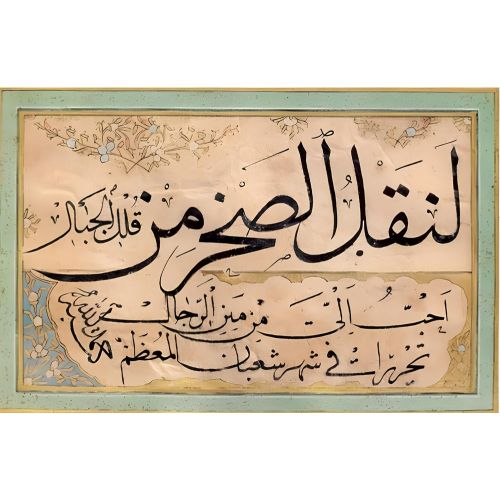 لنقل الصخر من قلل الجبال
احب الي من منن الرجال
تحريرات في شهر شعبان المعظم